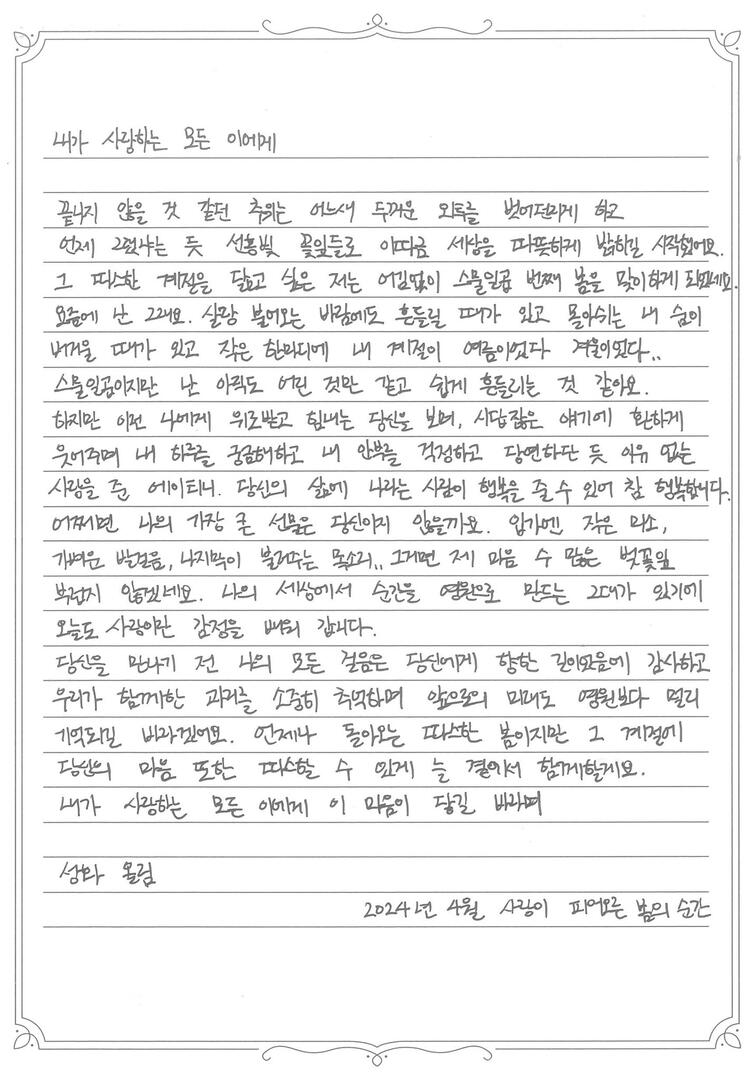 내가 사랑하는 모든 이에게
끝나지 않을 것 같던 추위는 어느새 두꺼운 외투를 벗어던지게 하고
언제 그랬냐는 듯 선홍빛 꽃잎들로 이따금 세상을 따뜻하게 밝히길 시작했어요.
그 따스한 계절을 닮고 싶은 저는 어김없이 스물일곱 번째 봄을 맞이하게 되었네요.
요즘에 난 그래요. 살랑 불어오는 바람에도 흔들릴 때가 있고 몰아쉬는 내 숨이
버거울 때가 있고 작은 한마디에 내 계절이 여름이었다 겨울이었다..
스물일곱이지만 난 아직도 어린 것만 같고 쉽게 흔들리는 것 같아요.
하지만 이런 나에게 위로받고 힘내는 당신을 보며, 시답잖은 얘기에 환하게
웃어주며 내 하루를 궁금해하고 내 안부를 걱정하고 당연하단 듯 이유 없는
사랑을 준 에이티니. 당신의 삶에 나라는 사람이 행복을 줄 수 있어 참 행복합니다.
어쩌면 나의 가장 큰 선물은 당신이지 않을까요. 입가엔 작은 미소,
가벼운 발걸음, 나지막이 불러주는 목소리.. 그거면 제 마음 수 많은 벚꽃잎
부럽지 않겠네요. 나의 세상에서 순간을 영원으로 만드는 그대가 있기에
오늘도 사랑이란 감정을 배워 갑니다.
당신을 만나기 전 나의 모든 걸음은 당신에게 향한 길이었음에 감사하고
우리가 함께한 과거를 소중히 추억하며 앞으로의 미래도 영원보다 멀리
기억되길 바라겠어요. 언제나 돌아오는 따스한 봄이지만 그 계절에
당신의 마음 또한 따스할 수 있게 늘 곁에서 함께할게요.
내가 사랑하는 모든 이에게 이 마음이 닿길 바라며
성화 올림
2024년 4월 사랑이 피어오른 봄의 순간